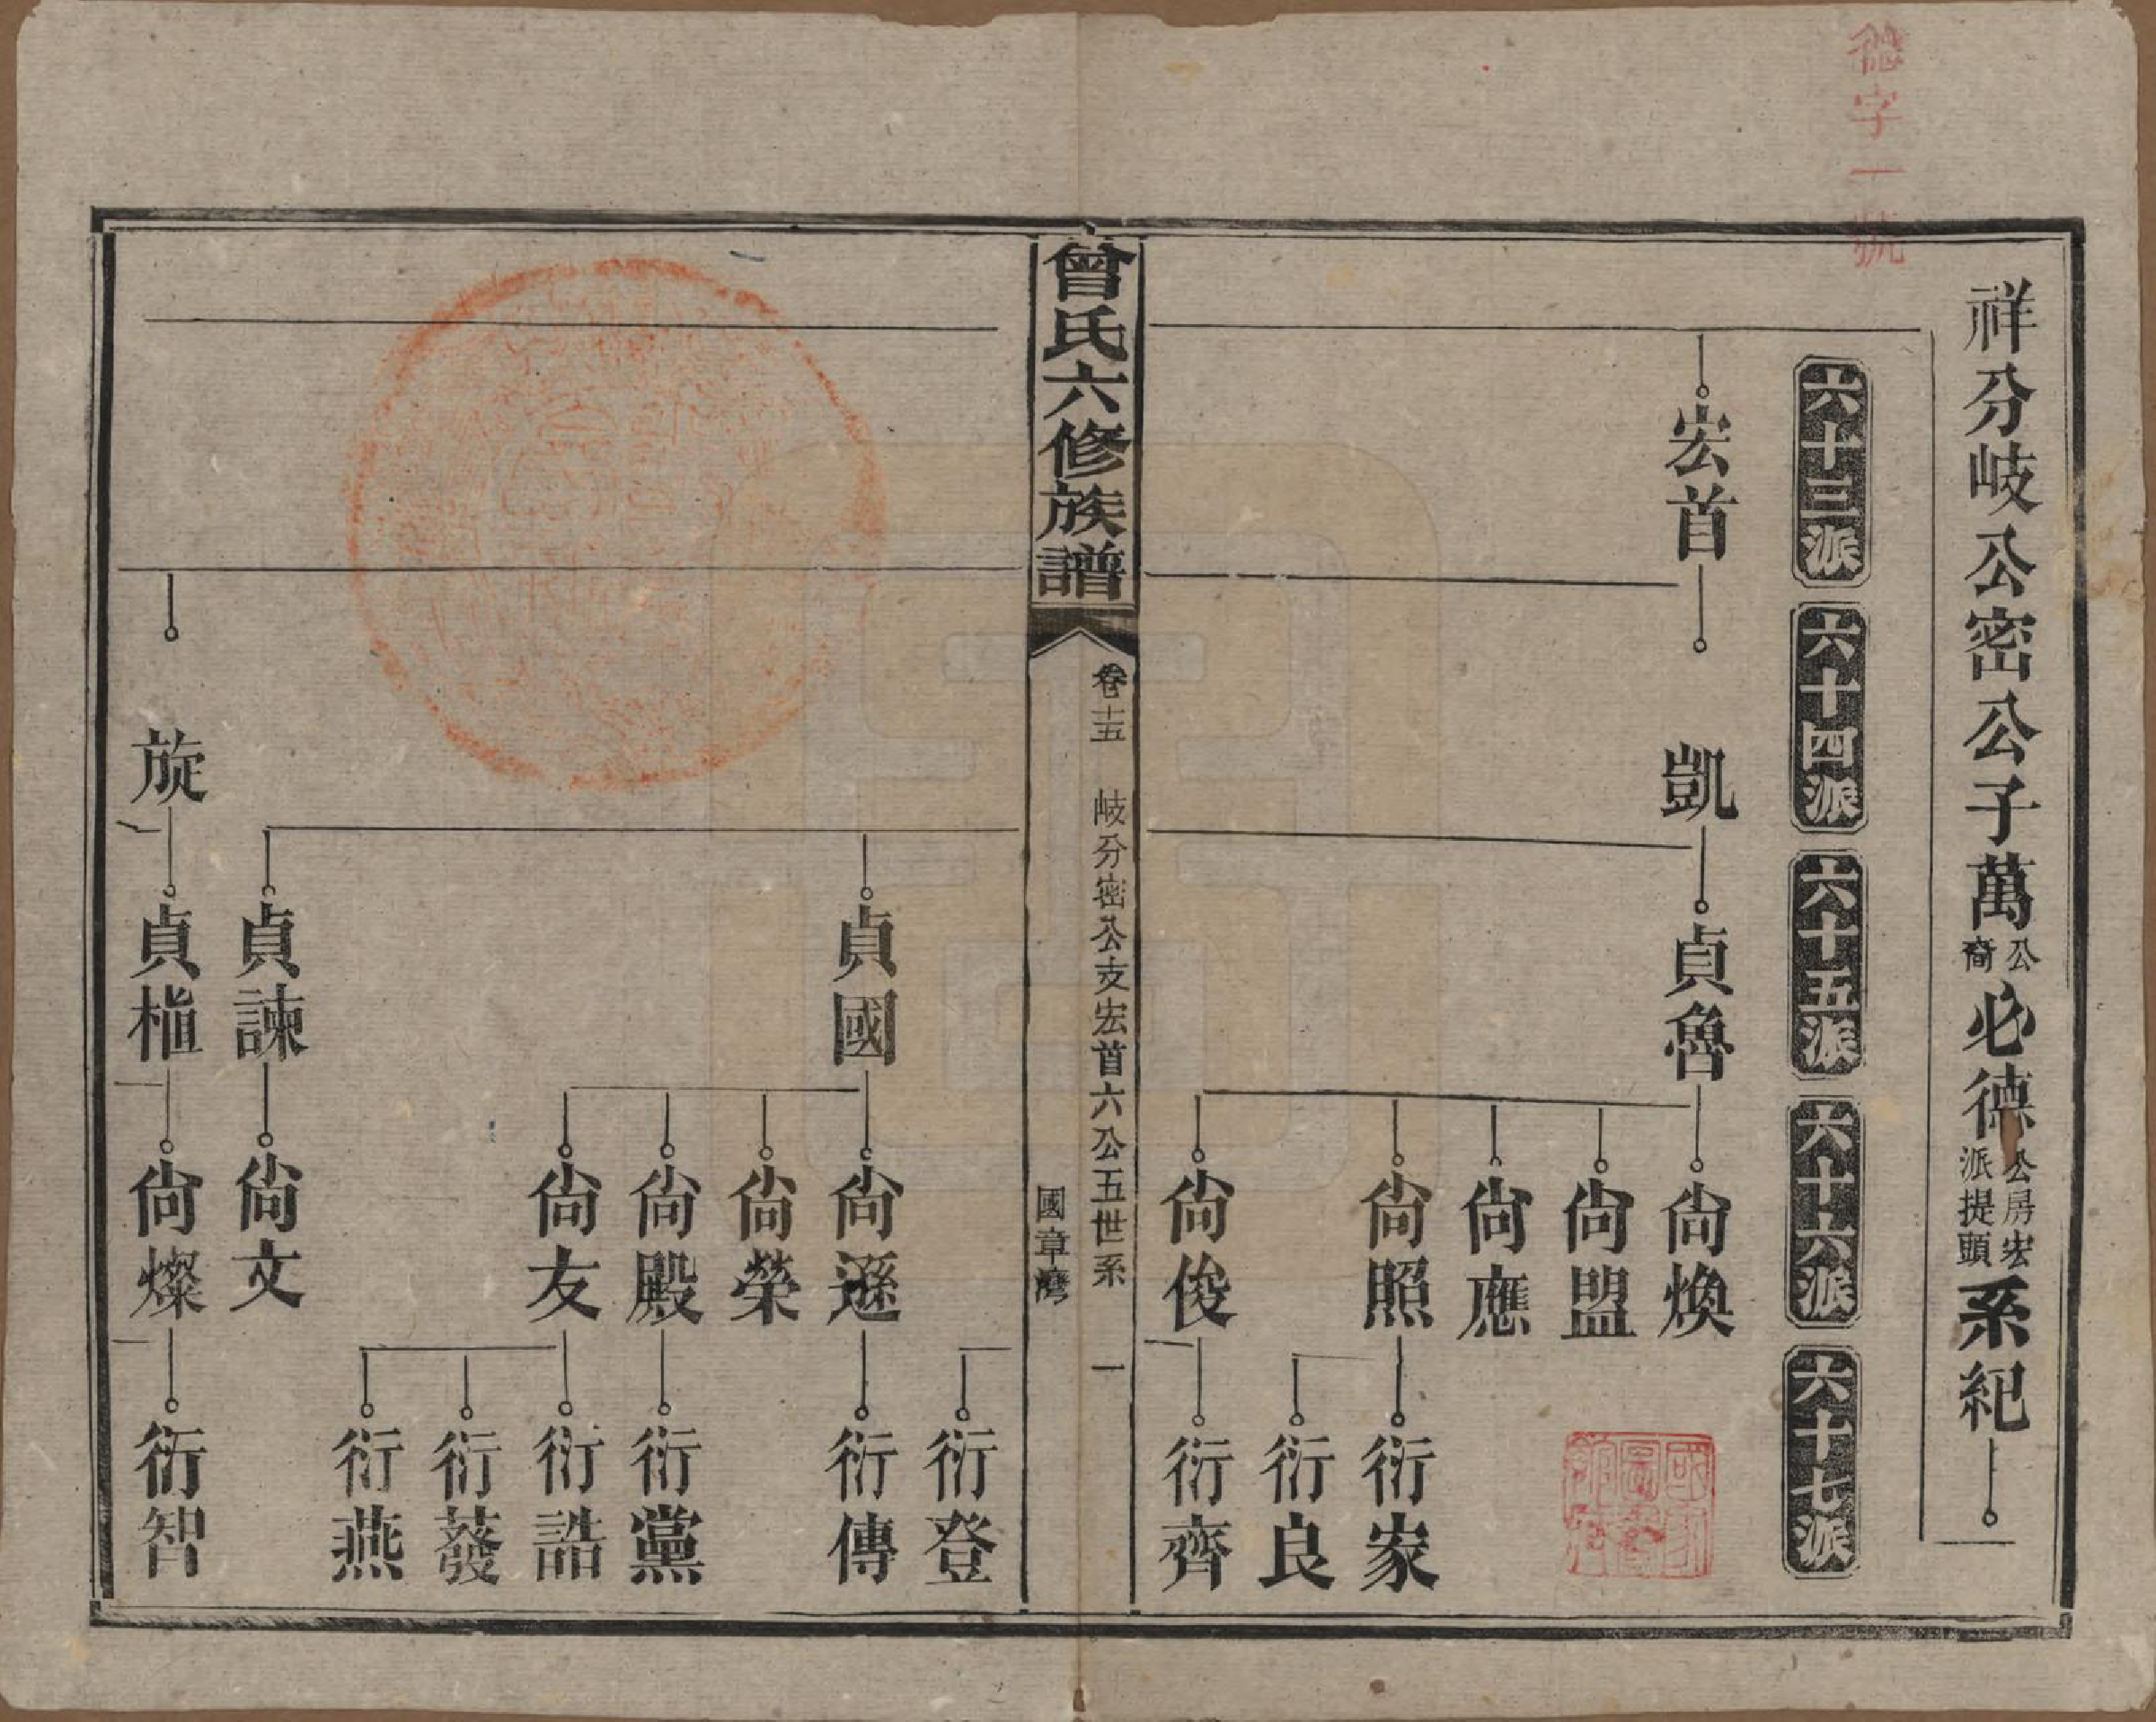 祥分岐公密公子萬公裔必德公房宏派提頭系紀
六十三派
六十四派
六十五派
六十六派
六十七派
宏首
凱
貞魯
尙煥
尙盟
尙應
尙照
衍家
衍良
尙俊
衍齊
曾氏六修族譜
卷十五
岐分密公支宏首六公五世系
一
國章灣
衍登
貞國
尙遜
衍傳
尙榮
尙殿
衍黨
尙友
衍誥
衍蕟
衍燕
貞諫
尙文
旋
貞植
尙燦
衍智
字一號
國家圖書館藏